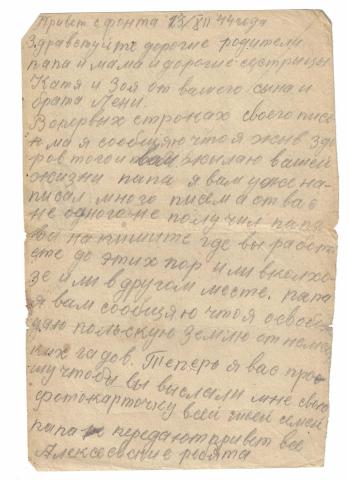 Привет с фронта 13/XII 44 года
Здравствуйте дорогие родители
папа и мама и дорогие сестрицы
Катя и Зоя от вашого сына и
брата Лени.
Вопервых строках своего писе
ма я сообщяю что я жив здо
ров того и вам желаю вашей
жизни папа я вам уже на-
писал много писем а от вас
не одного не получил папа
вы напишите где вы работ
ете до этих пор или вколхо-
зе или в другом месте. папа
я вам сообщяю что я освобо
ждаю польскую землю от немец
ких гадов. Теперь я вас про
шу чтобы вы выслали мне свою
фотокарточку всей своей семей
папа передают привет все
Алексеевские ребята